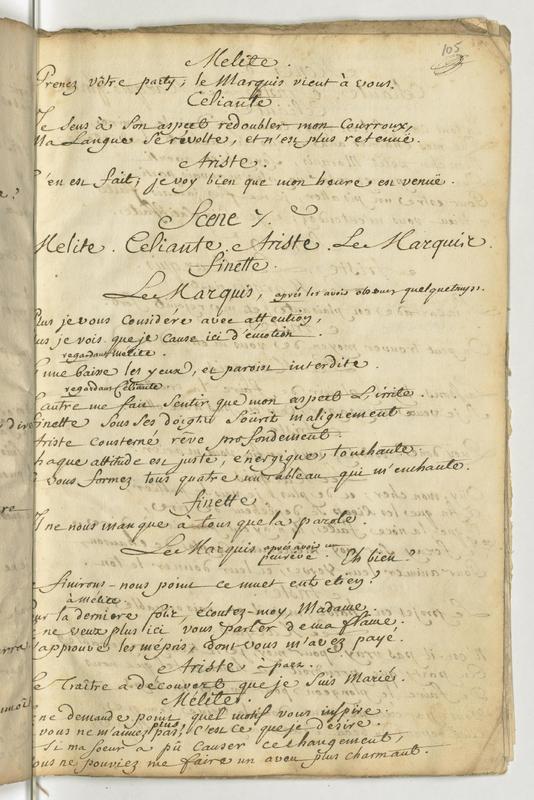 105
Melite.
Prenez vôtre party; le Marquis vient à vous.
Celiante.
Je sens à son aspect redoubler mon Courroux,
Ma Langue se révolte, et n'en plus retenuë.
Ariste.
C'en est fait; je voy bien que mon heure est venuë.
Scene 7.
Melite. Celiante. Ariste. Le Marquis.
finette.
Le Marquis, après les avoir observez quelque tems.
Plus je vous considére avec attention,
Plus je vois que je cause ici d'émotion.
regardant Melite.
L'une baisse les yeux, et paroist interdite.
regardant Celiante.
L'autre me fait sentir que mon aspect L'irrite
finette sous ses doigts Sourit malignement
Ariste consterné rêve profondement.
Chaque attitude est juste, énergique, touchante.
Et vous formez tous quatre un Tableau qui m'enchante.
finette.
Il ne nous manque à tous que la parole.
Le Marquis après avoir un peu rêvé. Eh bien?
Ne finirons-nous point ce muet entretien?
à Melite
Pour la derniere fois, écoutez-moy Madame.
Je ne veux plus ici vous parler de ma flâme.
J'approuve les mépris, dont vous m'avez payé.
Ariste à part.
Le Traître a découvert que je suis Marié.
Mélite.
Je ne demande point quel motif vous inspire.
vous ne m'aimez plus pas; c'est ce que je désire.
Si ma soeur a pû causer ce changement,
vous ne pouviez me faire un aveu plus charmant.